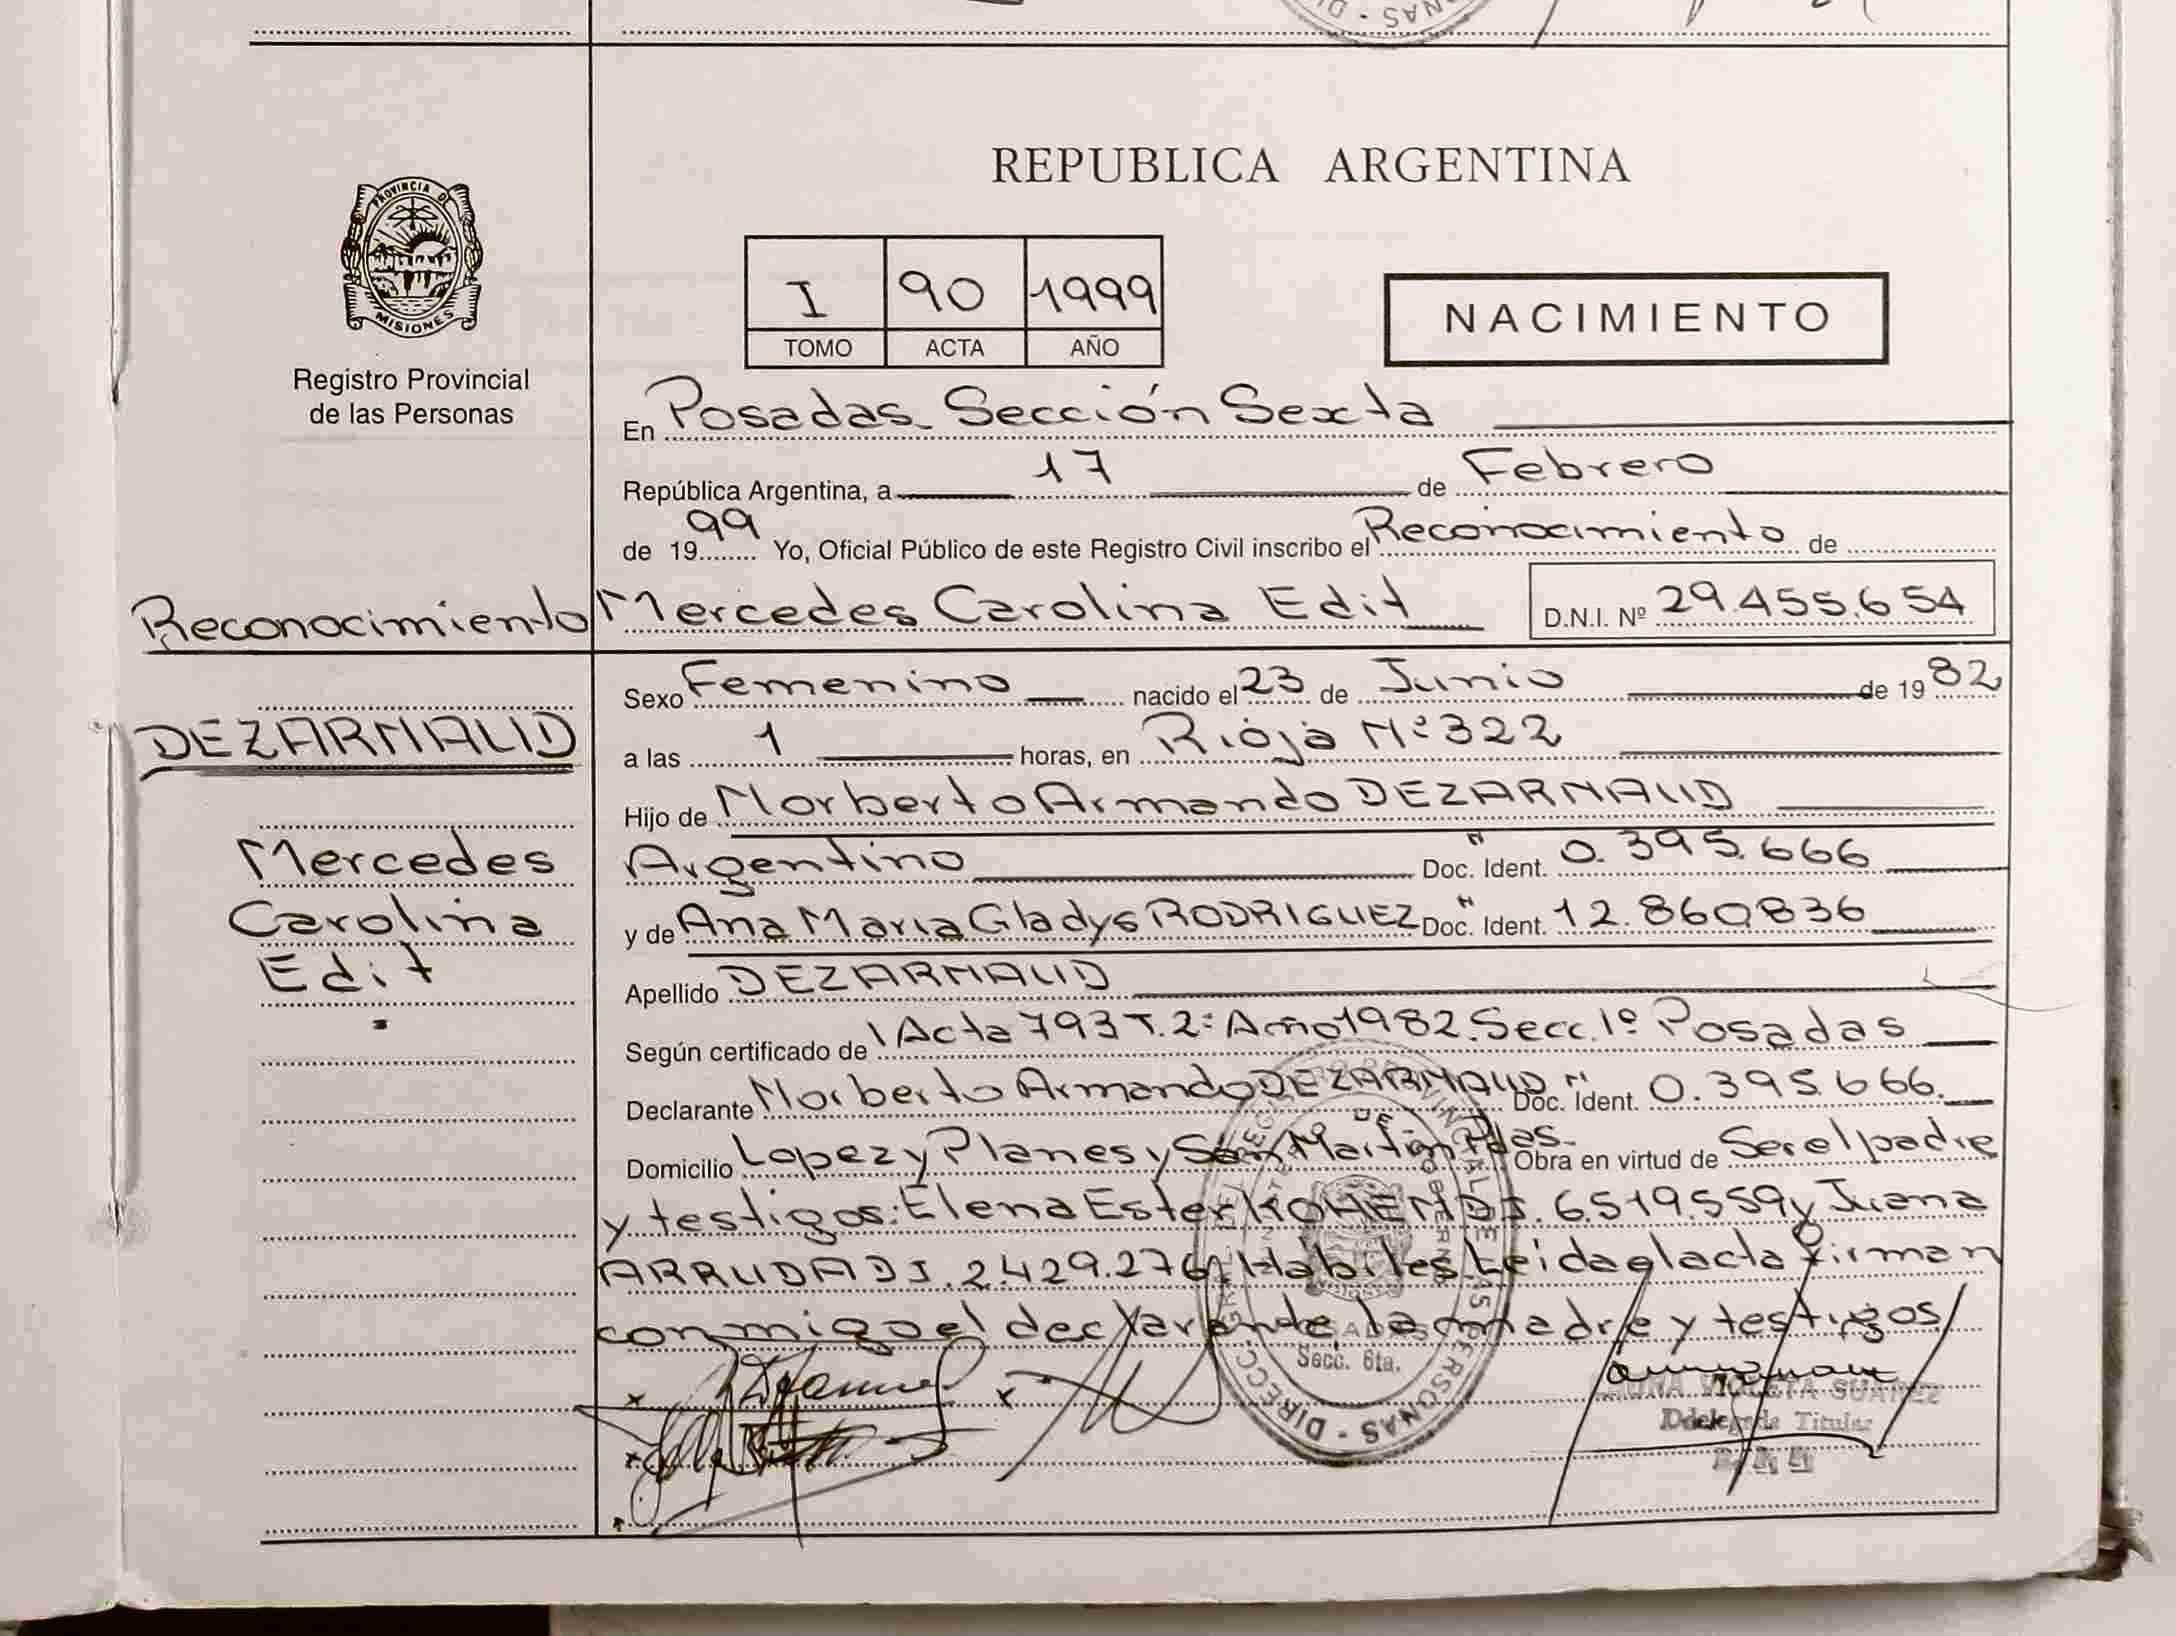 REPUBLICA ARGENTINA
PROVINCIA DE
MISIONES
Registro Provincial
de las Personas
I 90 1999
TOMO ACTA AÑO
NACIMIENTO
En Posadas Sección Sexta
República Argentina, a 17 de Febrero
de 1999 Yo, Oficial Público de este Registro Civil inscribo el Reconocimiento de
Reconocimiento
Mercedes Carolina Edit D.N.I. Nº 29.455.654
DEZARNAUD
Mercedes
Carolina
Edit
Sexo Femenino nacido el 23 de Junio de 1982
a las 1 horas, en Rioja Nº 322
Hijo de Norberto Armando DEZARNAUD
Argentino Doc. Ident. Nº 0.395.666
y de Ana Maria Gladys RODRIGUEZ Doc. Ident. Nº 12.860836
Apellido DEZARNAUD
Según certificado de Acta 793 T.2º Año 1982. Secc. 1º Posadas
Declarante Norberto Armando DEZARNAUD Doc. Ident. Nº 0.395.666.
Domicilio Lopez y Planes y San Martin Pdas. Obra en virtud de Ser el padre
y testigos: Elena Ester D.I. 6.519.559 y Juana
ARRUDA D.I. 2.429.276 Hábiles Leida el acta firman
conmigo el declarante la madre y testigos
Secc. 6ta.
SUAREZ
Delegada Titular